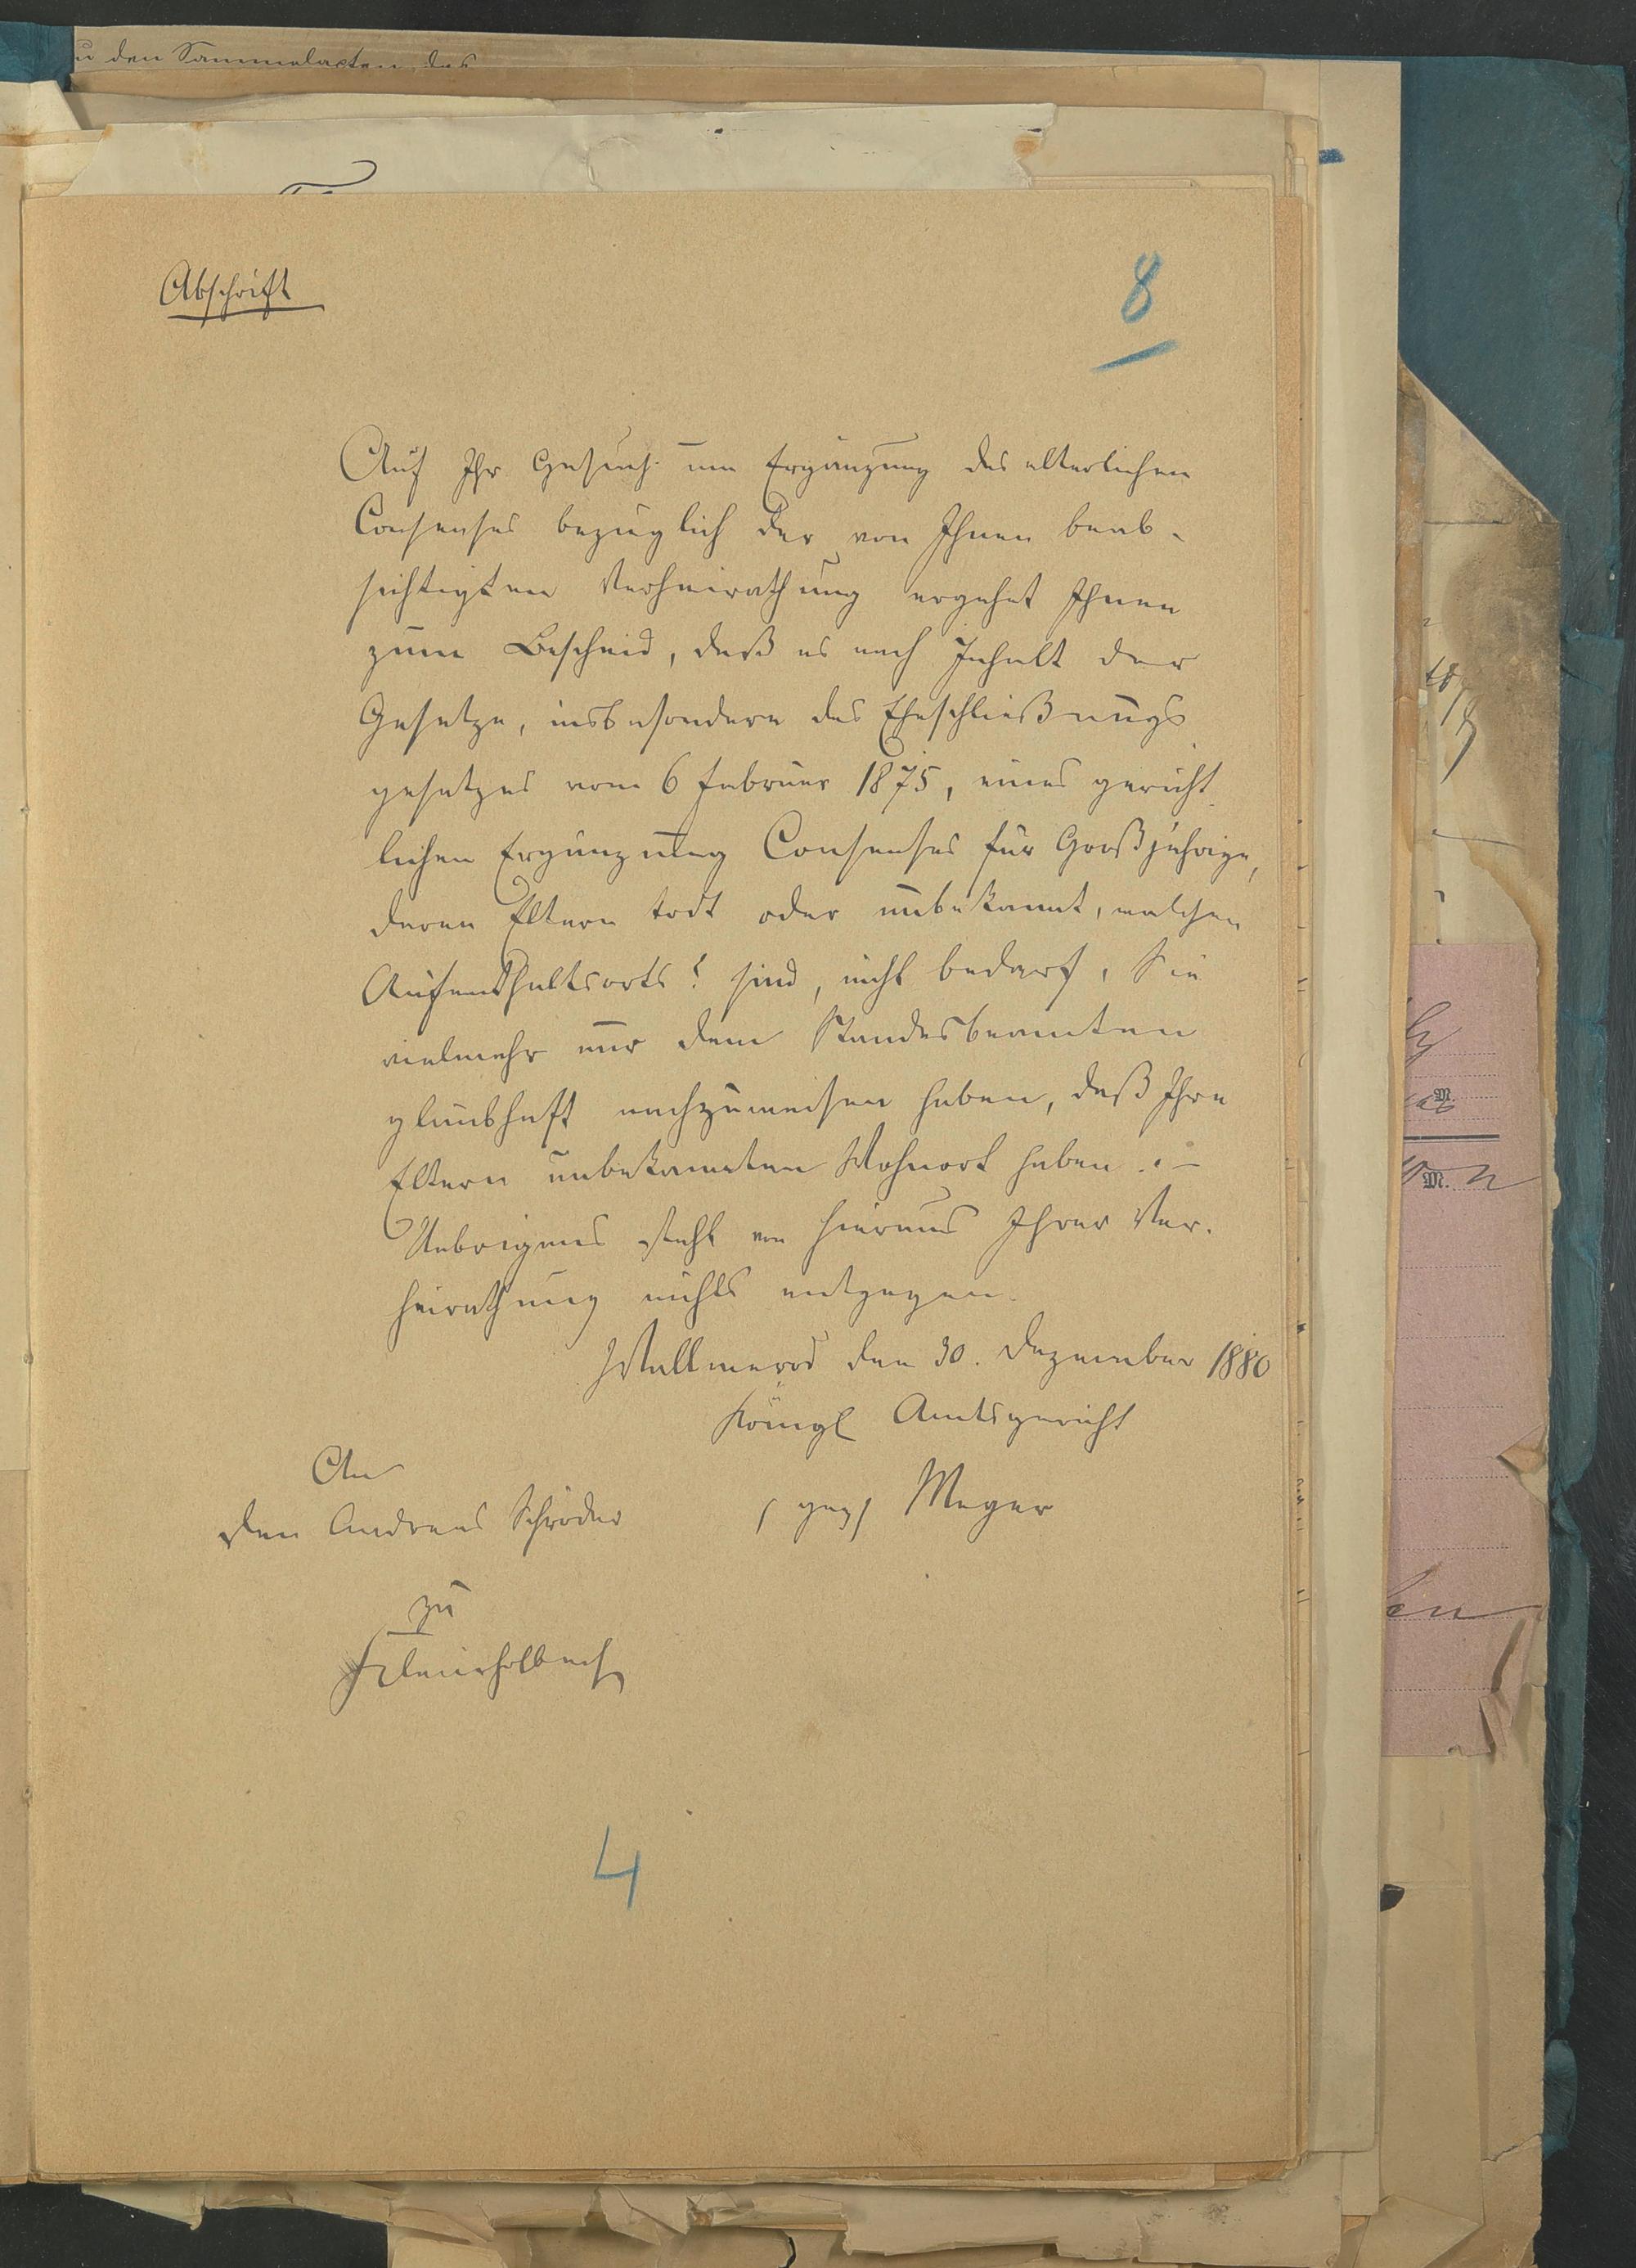 u den Sammelacten des
Abschrift
8
Auf Ihr Gesuch um Ergänzung des elterlichen
Consenses bezüglich der von Ihnen beab-
sichtigten Verheirathung ergehet Ihnen
zum Bescheid, daß es nach Inhalt der
Gesetze, insbesondere des Eheschließungs
gesetzes vom 6 Februar 1875, eines gericht-
lichen Ergänzung Consenses für Großjährige,
deren Eltern todt oder unbekannt, welchen
Aufenthaltsorts? sind, nicht bedarf, Sie
vielmehr nur dem Standesbeamten
glaubhaft nachzuweisen haben, daß Ihre
Eltern unbekannten Wohnort haben. –
Uebrigens steht von hieraus Ihrer Ver-
heirathung nichts entgegen.
Wallmerod den 30. Dezember 1880
Königl Amtsgericht
An
(gez) Meyer
den Andreas Schröder
zu
4